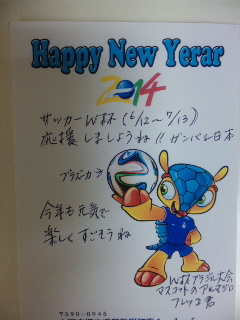 Happy New Yerar
2014
サッカーW杯(6/12～7/13)
応援しましょうね!! ガンバレ日本
ブラズーカ
今年も元気で
楽しくすごそうね
W杯ブラジル大会
マスコットのアルマジロ
フレッコ君
〒590-0946